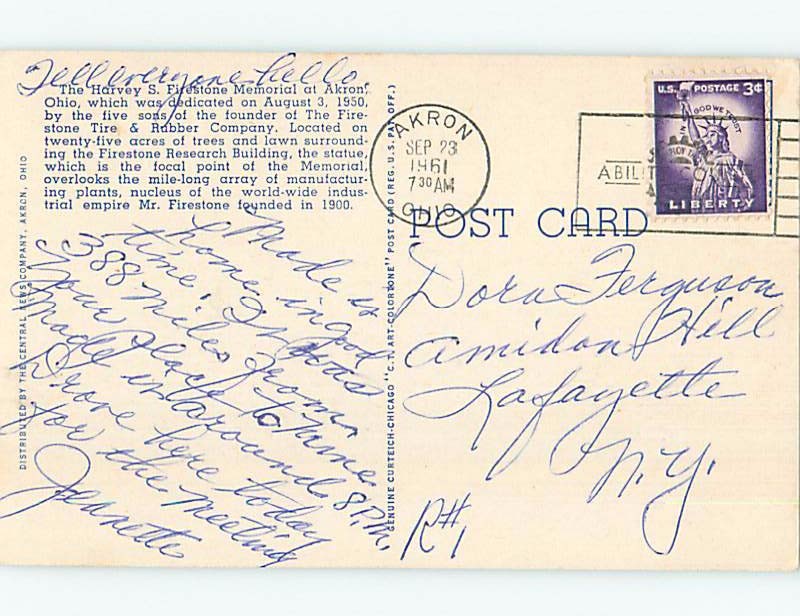 Tell everyone hello.
The Harvey S. Firestone Memorial at Akron,
Ohio, which was dedicated on August 3, 1950,
by the five sons of the founder of The Fire-
stone Tire & Rubber Company. Located on
twenty-five acres of trees and lawn surround-
ing the Firestone Research Building, the statue,
which is the focal point of the Memorial,
overlooks the mile-long array of manufactur-
ing plants, nucleus of the world-wide indus-
trial empire Mr. Firestone founded in 1900.
Made it
home in good
time. It was
388 miles from
your place to mine.
Made it in around 8 P.M.
Drove here today
for the meeting
Jeanette
DISTRIBUTED BY THE CENTRAL NEWS COMPANY, AKRON, OHIO
GENUINE CURTEICH-CHICAGO "C.T. ART-COLORTONE" POST CARD (REG. U.S. PAT. OFF.)
AKRON
SEP 23
1961
7 30 AM
OHIO
ABILIT
U.S. POSTAGE 3¢
IN GOD WE TRUST
LIBERTY
POST CARD
Dora Ferguson
Amidon Hill
Lafayette
N.Y.
R#1